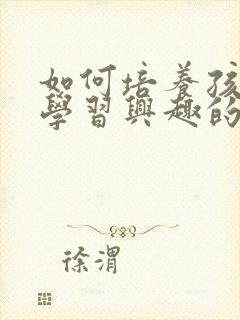 如何培養孩
學習興趣的
徐渭